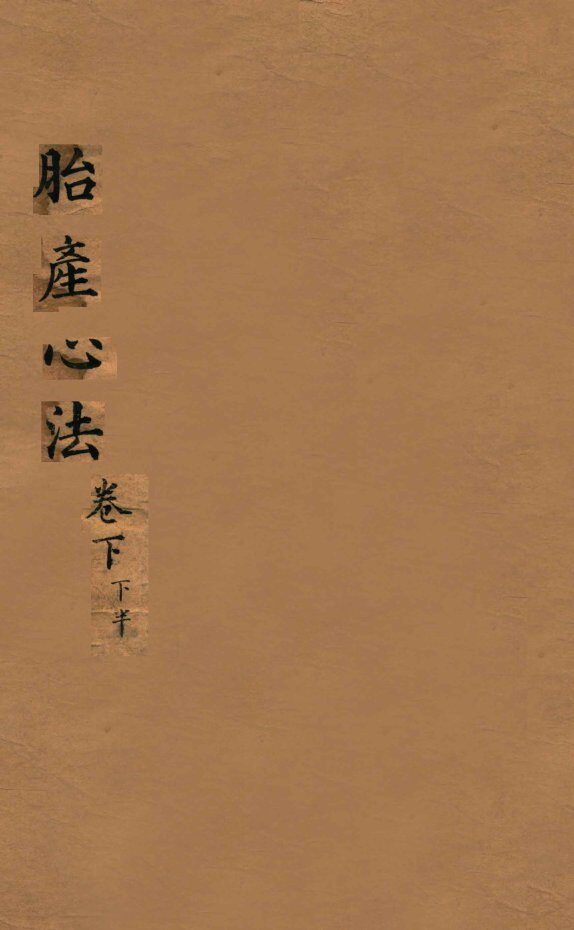 胎產心法
卷下
下半